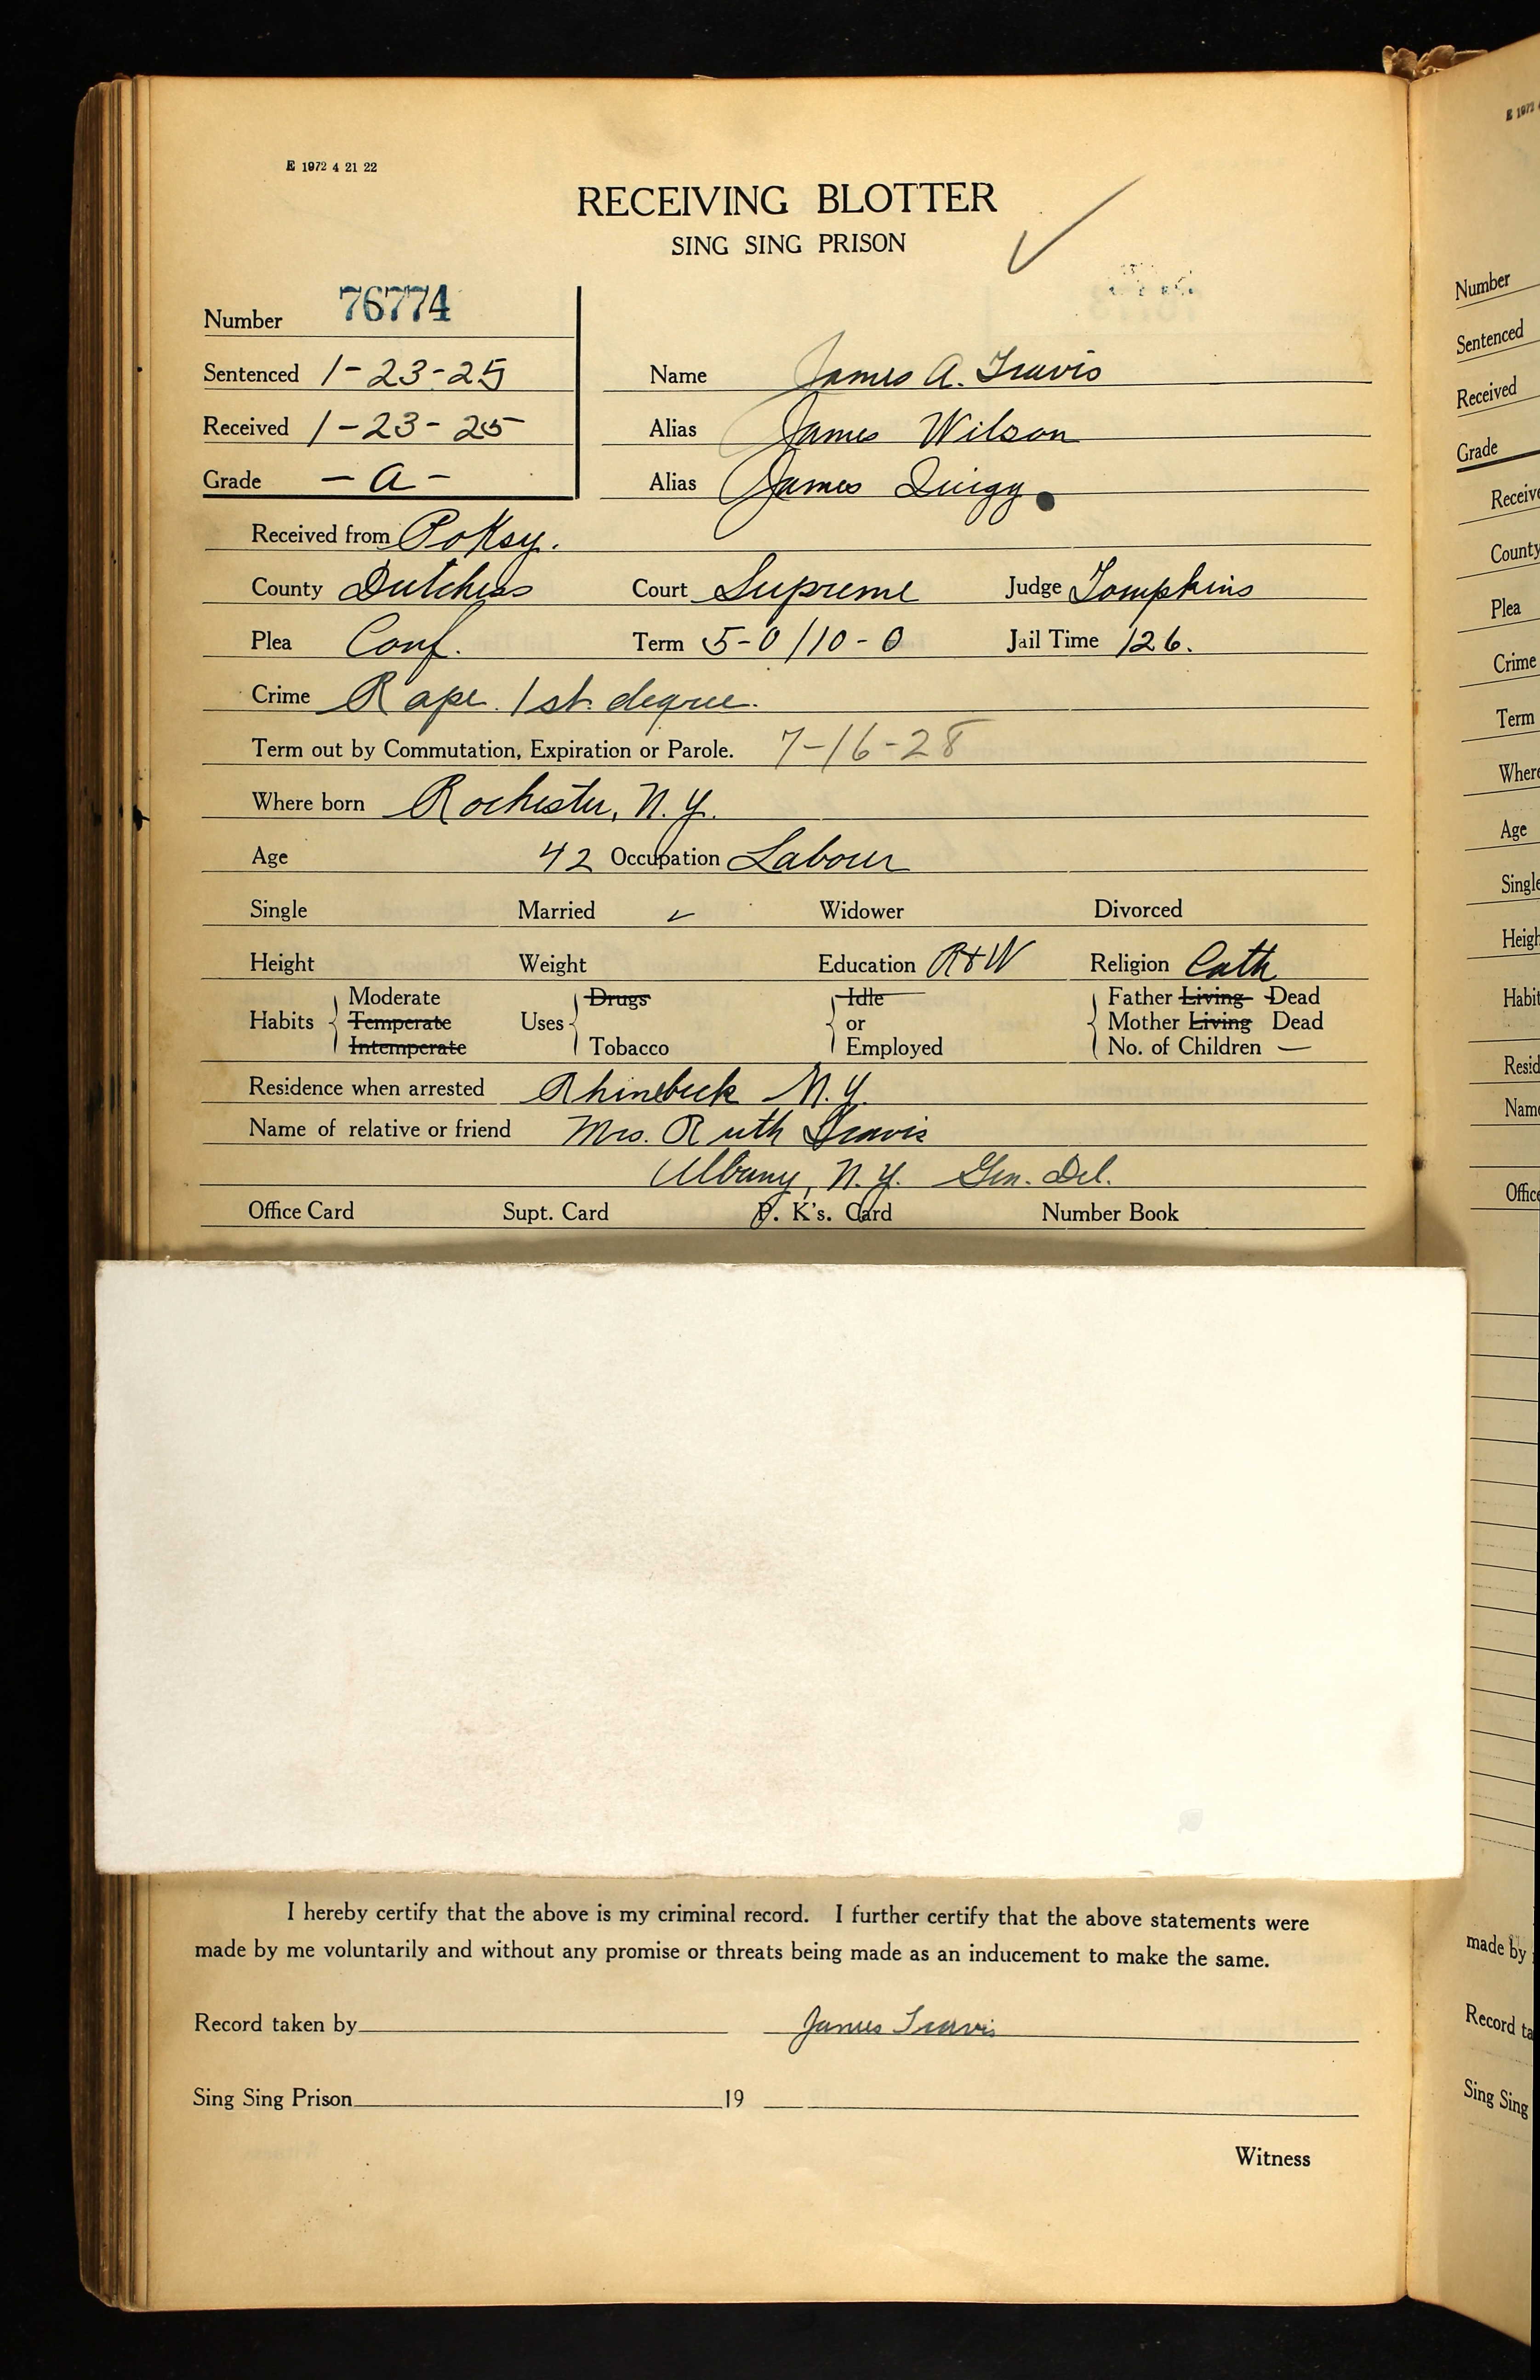 E 1972 4 21 22
RECEIVING BLOTTER
SING SING PRISON
Number 76774
Sentenced 1-23-25
Name James A. Travis
Received 1-23-25
Alias James Wilson
Grade - a -
Alias James Quigy
Received from Poksy.
County Dutchess Court Supreme Judge Tompkins
Plea Conf. Term 5-0/10-0 Jail Time 126.
Crime Rape 1st. degree.
Term out by Commutation, Expiration or Parole. 7-16-28
Where born Rochester, N.Y.
Age 42 Occupation Labour
Single Married ✓ Widower Divorced
Height Weight Education R+W Religion Cath
Habits Moderate Temperate Intemperate Uses Drugs Tobacco Idle or Employed Father Living Dead Mother Living Dead No. of Children —
Residence when arrested Rhinebeck N.Y.
Name of relative or friend Mrs. Ruth Travis
Albany, N.Y. Gen. Del.
Office Card Supt. Card P. K's. Card Number Book
I hereby certify that the above is my criminal record. I further certify that the above statements were
made by me voluntarily and without any promise or threats being made as an inducement to make the same.
Record taken by James Travis
Sing Sing Prison 19
Witness
E 1972
Number
Sentenced
Received
Grade
County
Plea
Crime
Term
Age
made by
Sing Sing